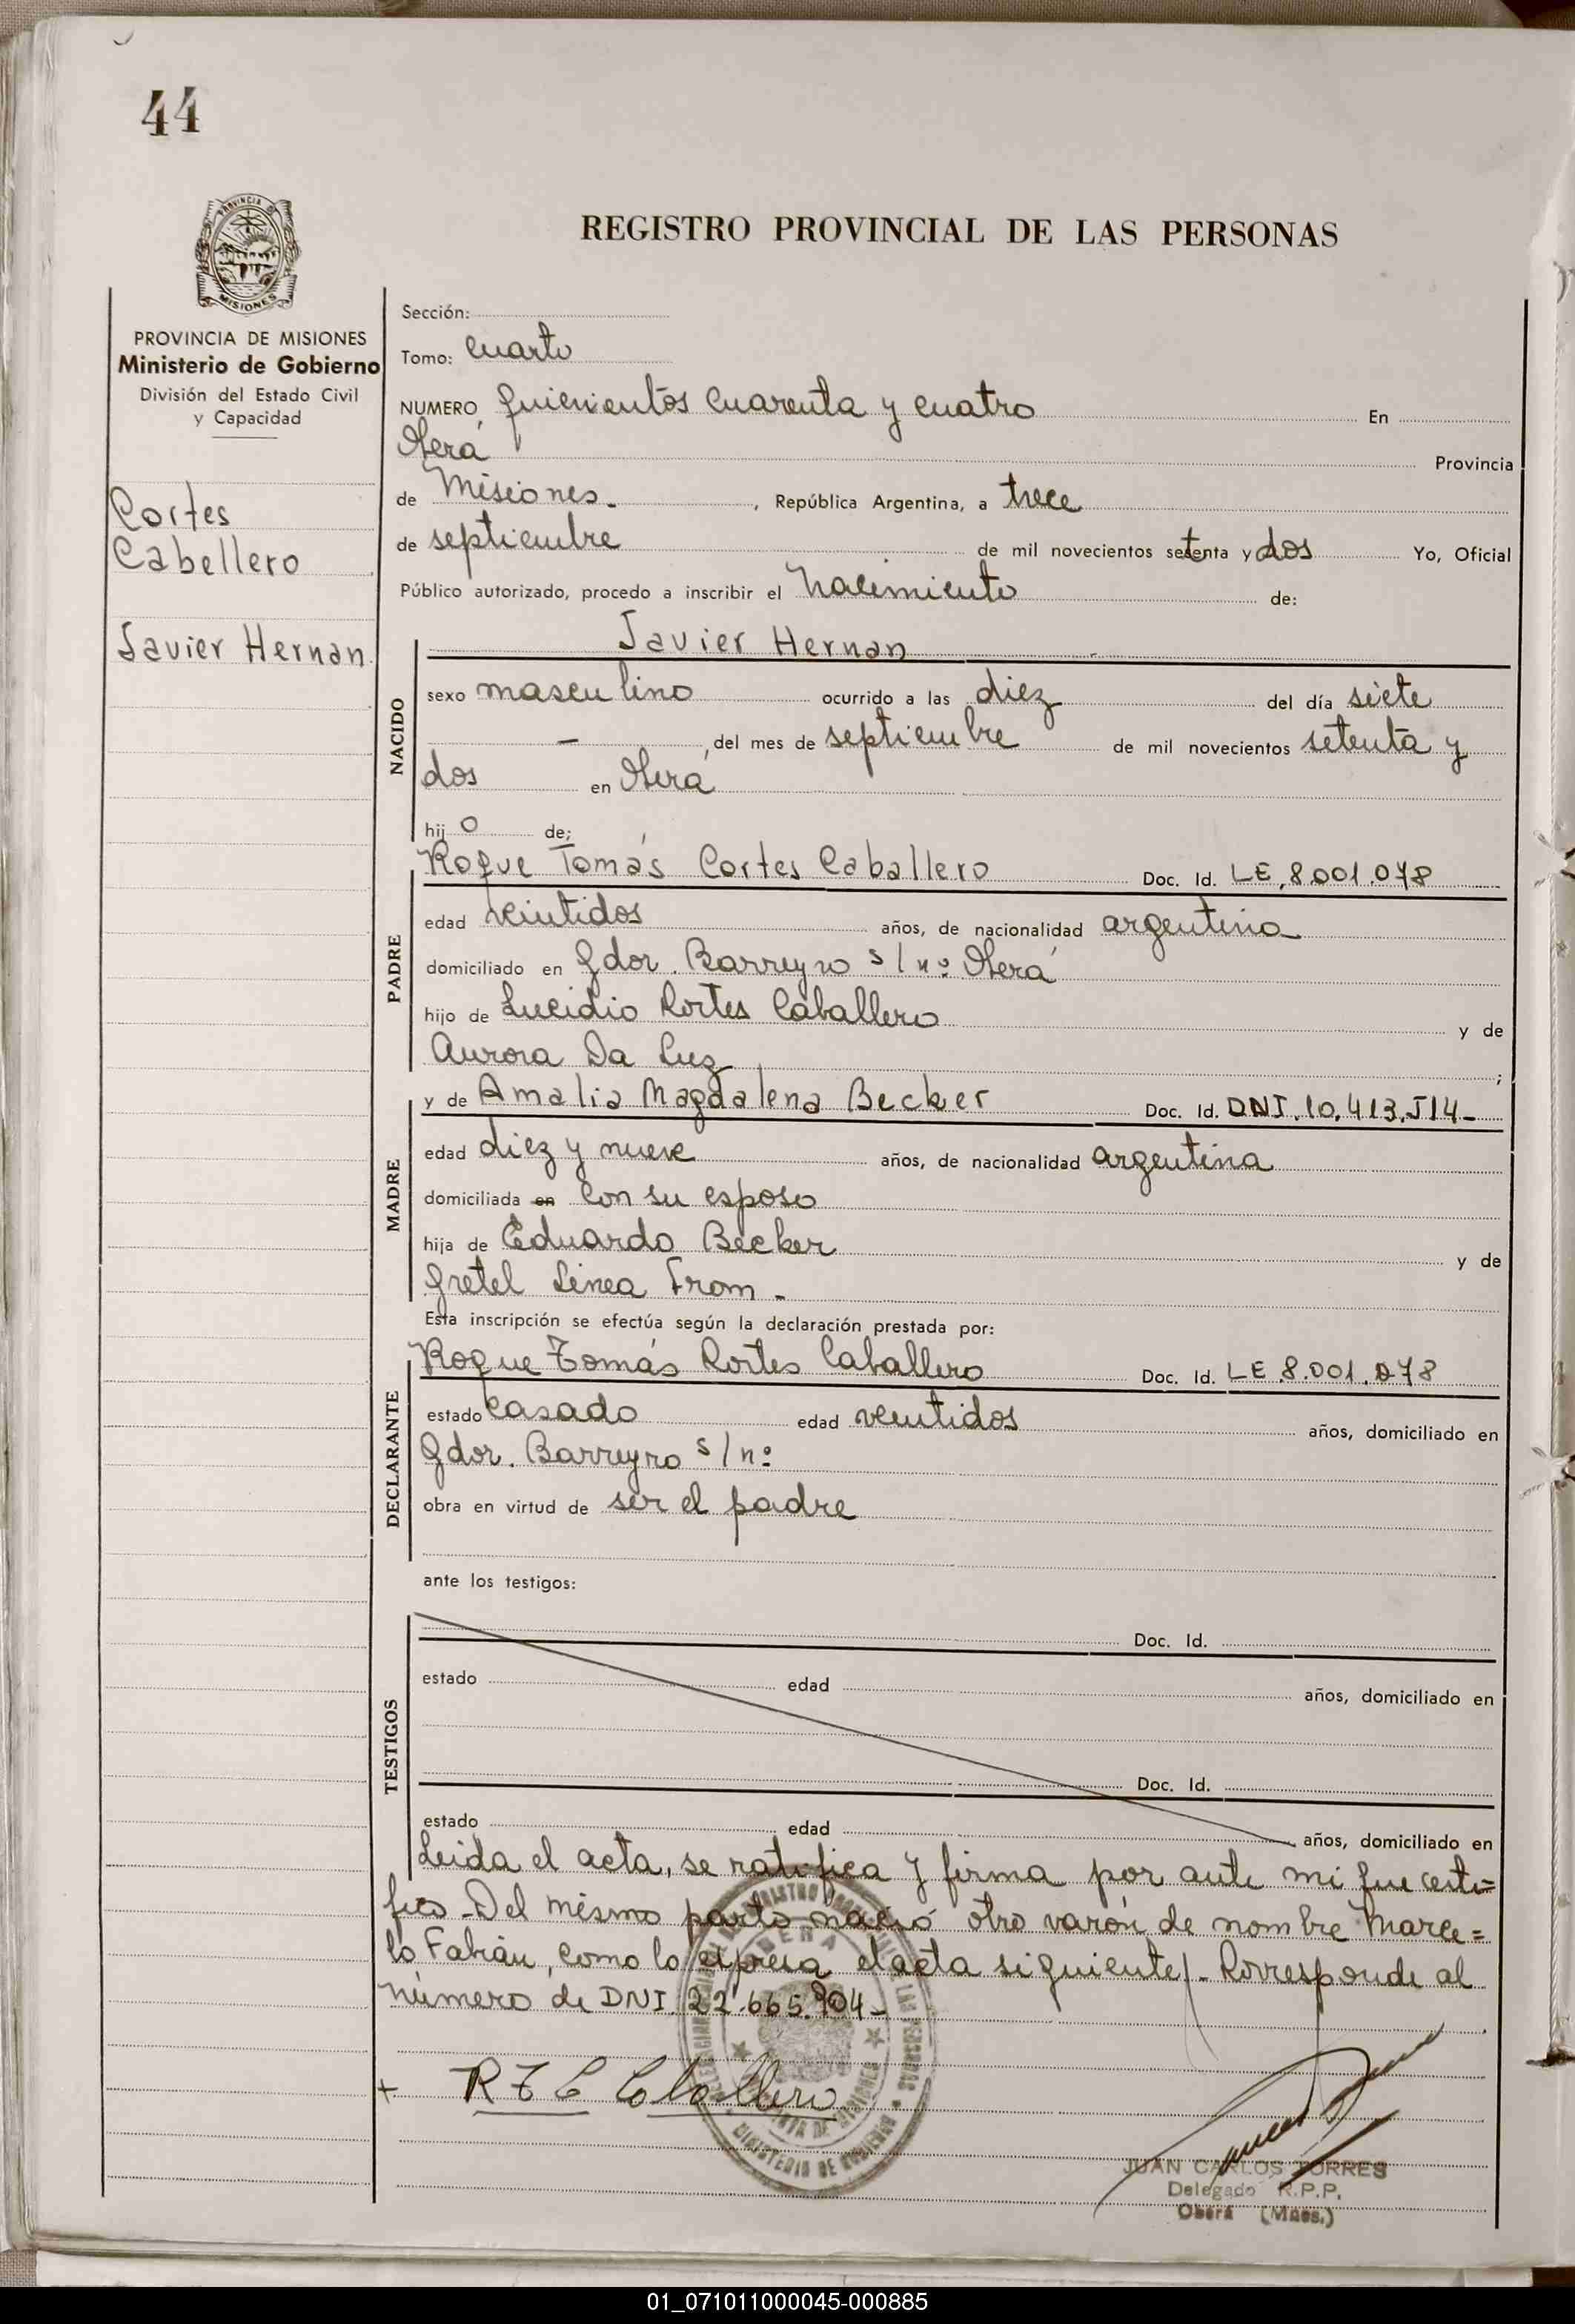 44
PROVINCIA
MISIONES
PROVINCIA DE MISIONES
Ministerio de Gobierno
División del Estado Civil
y Capacidad
Cortes
Cabellero
Javier Hernan
REGISTRO PROVINCIAL DE LAS PERSONAS
Sección:
Tomo: Cuarto
NUMERO quinientos cuarenta y cuatro En
Oberá Provincia
de Misiones. , República Argentina, a trece
de septiembre de mil novecientos setenta y dos Yo, Oficial
Público autorizado, procedo a inscribir el Nacimiento de:
NACIDO
Javier Hernan
sexo masculino ocurrido a las diez del día siete
— , del mes de septiembre de mil novecientos setenta y
dos en Oberá
hij o de:
PADRE
Roque Tomás Cortes Caballero Doc. Id. LE, 8.001.078
edad veintidos años, de nacionalidad argentina
domiciliado en Gdor. Barreyro s/nº Oberá
hijo de Lucidio Cortes Caballero y de
Aurora Da Luz ;
MADRE
y de Amalia Magdalena Becker Doc. Id. DNI. 10.413.514-
edad diez y nueve años, de nacionalidad argentina
domiciliada en con su esposo
hija de Eduardo Becker y de
Gretel Linea From -
Esta inscripción se efectúa según la declaración prestada por:
DECLARANTE
Roque Tomás Cortes Caballero Doc. Id. LE 8.001.078
estado casado edad veintidos años, domiciliado en
Gdor. Barreyro s/nº
obra en virtud de ser el padre
ante los testigos:
TESTIGOS
Doc. Id.
estado edad años, domiciliado en
Doc. Id.
estado edad años, domiciliado en
Leida el acta, se ratifica y firma por ante mi que certi=
fico - Del mismo parto nació otro varón de nombre Marce=
lo Fabián, como lo expresa el acta siguiente/. Corresponde al
número de DNI 22.665.904-
+ R T C Caballero
MINISTERIO DE GOBIERNO
OBERA
JUAN CARLOS TORRES
Delegado R.P.P.
Oberá (Mnes.)
01_071011000045-000885